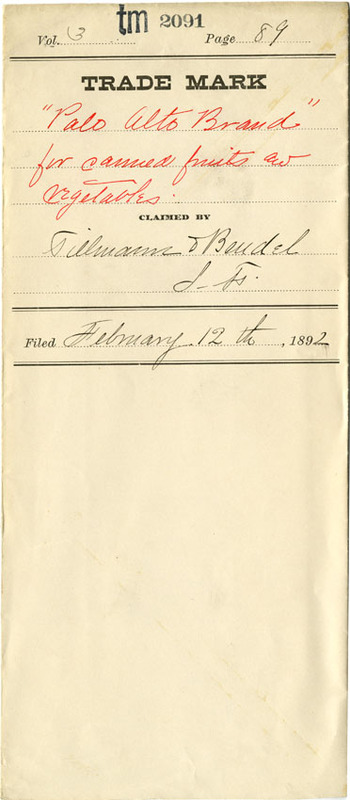 tm 2091
Vol. 3 Page 89
TRADE MARK
"Palo Alto Brand"
for canned fruits and
vegetables.
CLAIMED BY
Tillmann & Bendel
S. F.
Filed February 12th, 1892